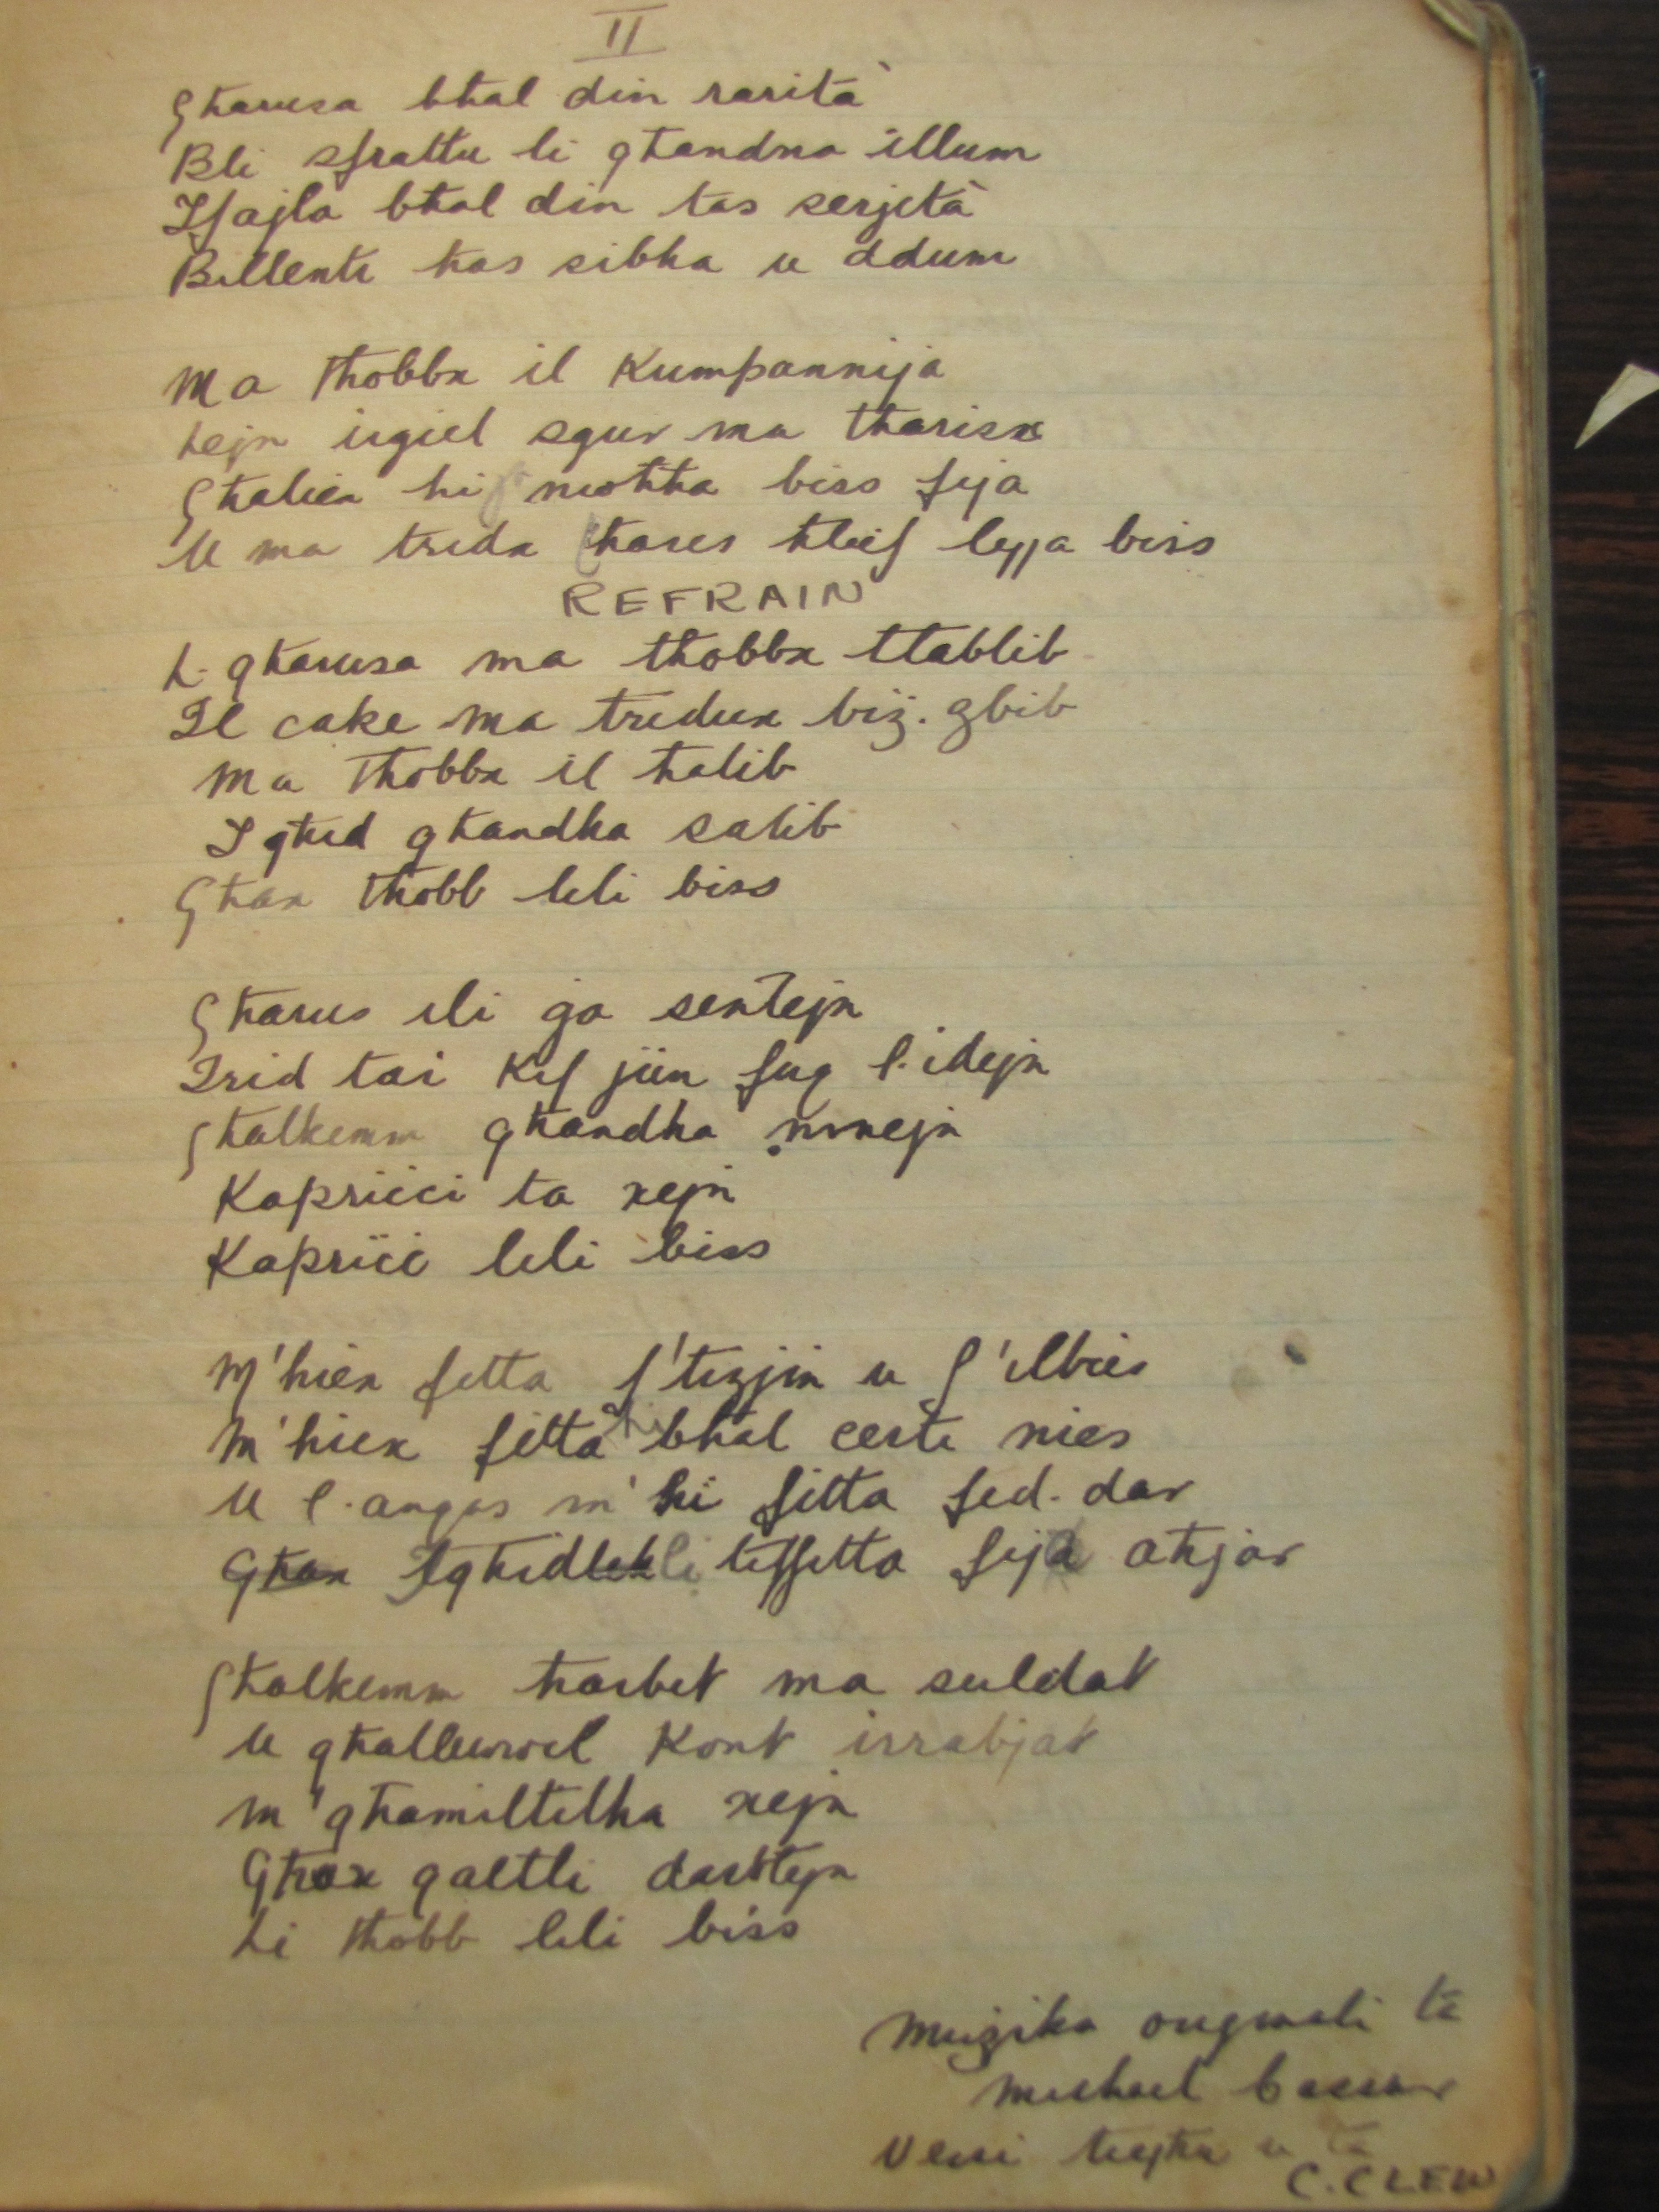 II
Għarusa bħal din rarità
Bli sfrattu li għandna illum
Issajla bħal din tas serjetà
Billenti ħas sibha u ddum
Ma tħobbx il kumpannija
Lejn irġiel sgur ma tħarisx
Għaliex hi moħħa biss fija
U ma tridx tħares ħlief lejja biss
REFRAIN
L-għarusa ma tħobbx ttablib
Il cake ma tridux biż-żbib
Ma tħobbx il ħalib
Igħid għandha salib
Għax tħobb lili biss
Għarus ili ġa sentejn
Irid tai kif jien fuq l-idejn
Għalkemm għandha nmejn
Kapriċċi ta xejn
Kapriċċi lili biss
M'hiex fitta f'tizjin u f'ilbies
M'hiex fitta hi bħal ċerti nies
U l-anqas m'hi fitta fid-dar
Għax Igħidlek li tiffitta fija aħjar
Għalkemm ħarbet ma suldat
U għalluwwel kont irrabjat
M'għamiltilha xejn
Għax qaltli darbtejn
Li tħobb lili biss
Mużika oriġinali ta
Michael
Versi tiegħu u ta
C. CLEW